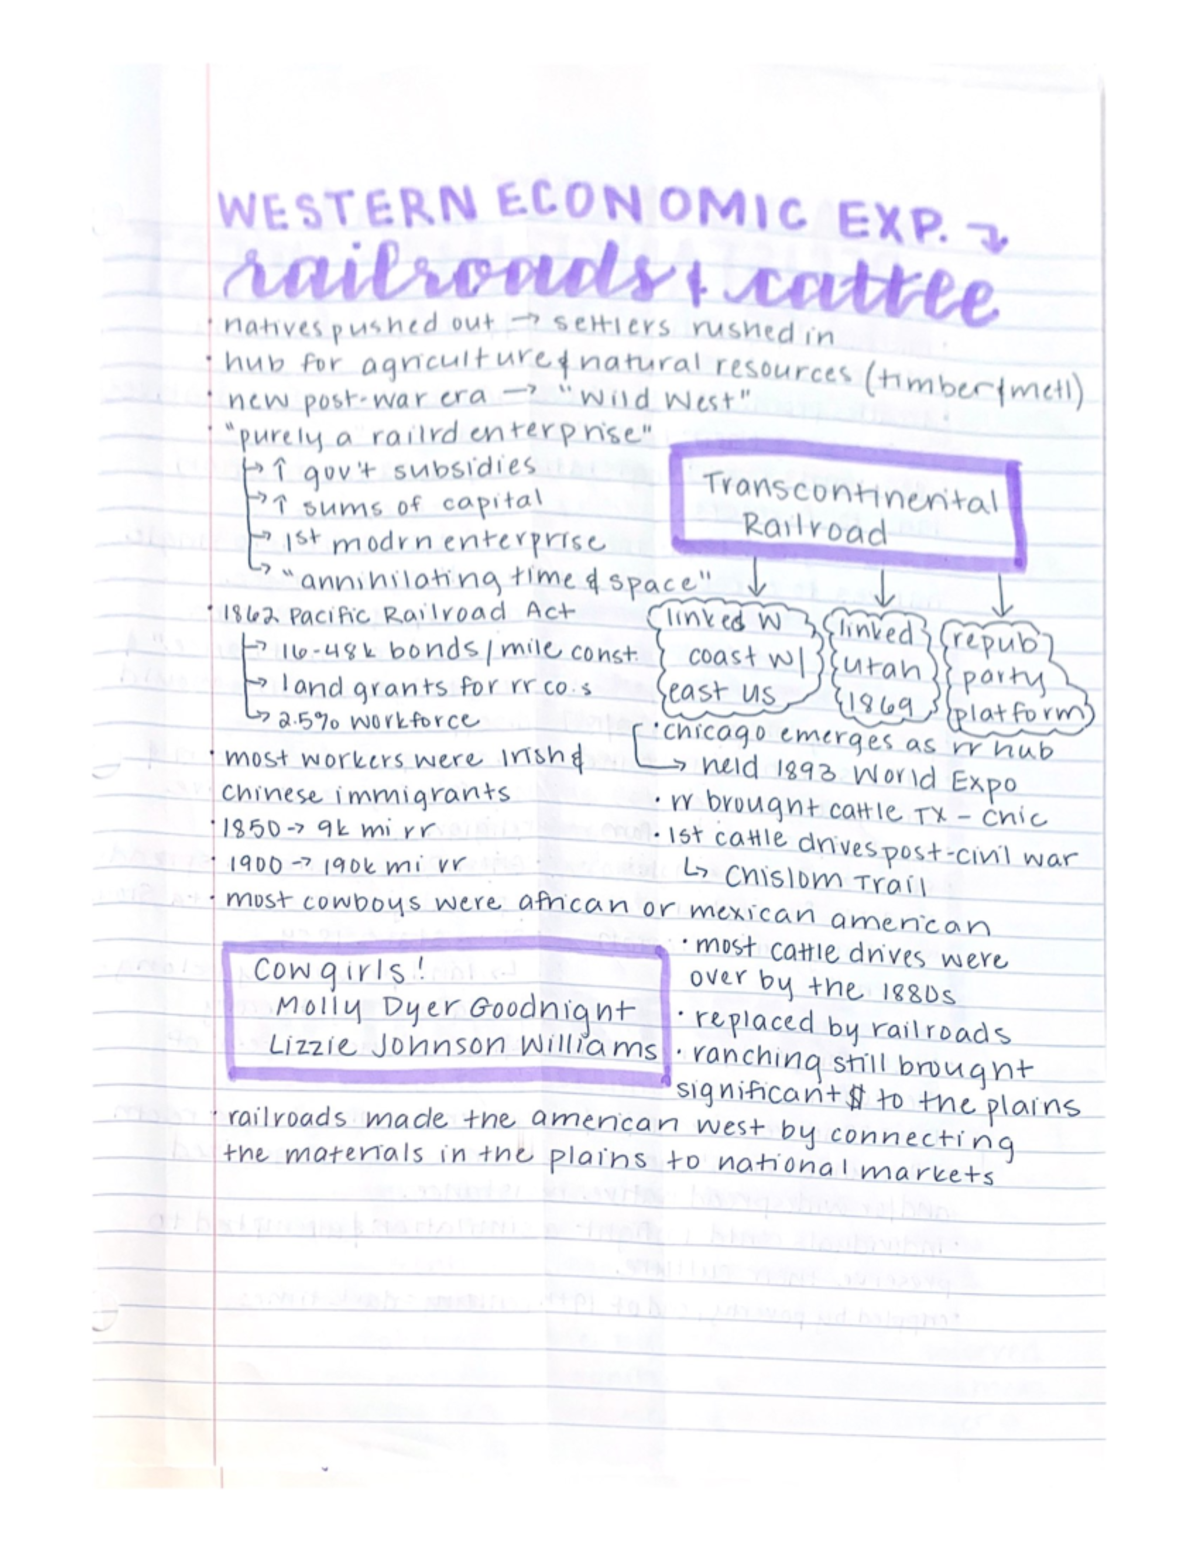 WESTERN ECONOMIC EXP. ↴
railroads & cattle
· natives pushed out → settlers rushed in
· hub for agriculture & natural resources (timber & metl)
· new post-war era → "Wild West"
· "purely a railrd enterprise"
↳ ↑ gov't subsidies
↳ ↑ sums of capital
↳ 1st modrn enterprise
↳ "annihilating time & space"
Transcontinental
Railroad
linked W
coast w/
east US
linked
utah
1869
repub
party
platform
· 1862 Pacific Railroad Act
↳ 16-48k bonds/mile const.
↳ land grants for rr co.s
↳ 2.5% workforce
· most workers were Irish &
chinese immigrants
· 1850 → 9k mi rr
· 1900 → 190k mi rr
· chicago emerges as rr hub
↳ held 1893 World Expo
· rr brought cattle TX - Chic
· 1st cattle drives post-civil war
↳ Chislom Trail
· most cowboys were african or mexican american
Cowgirls!
Molly Dyer Goodnight
Lizzie Johnson Williams
· most cattle drives were
over by the 1880s
· replaced by railroads
· ranching still brought
significant $ to the plains
· railroads made the american west by connecting
the materials in the plains to national markets